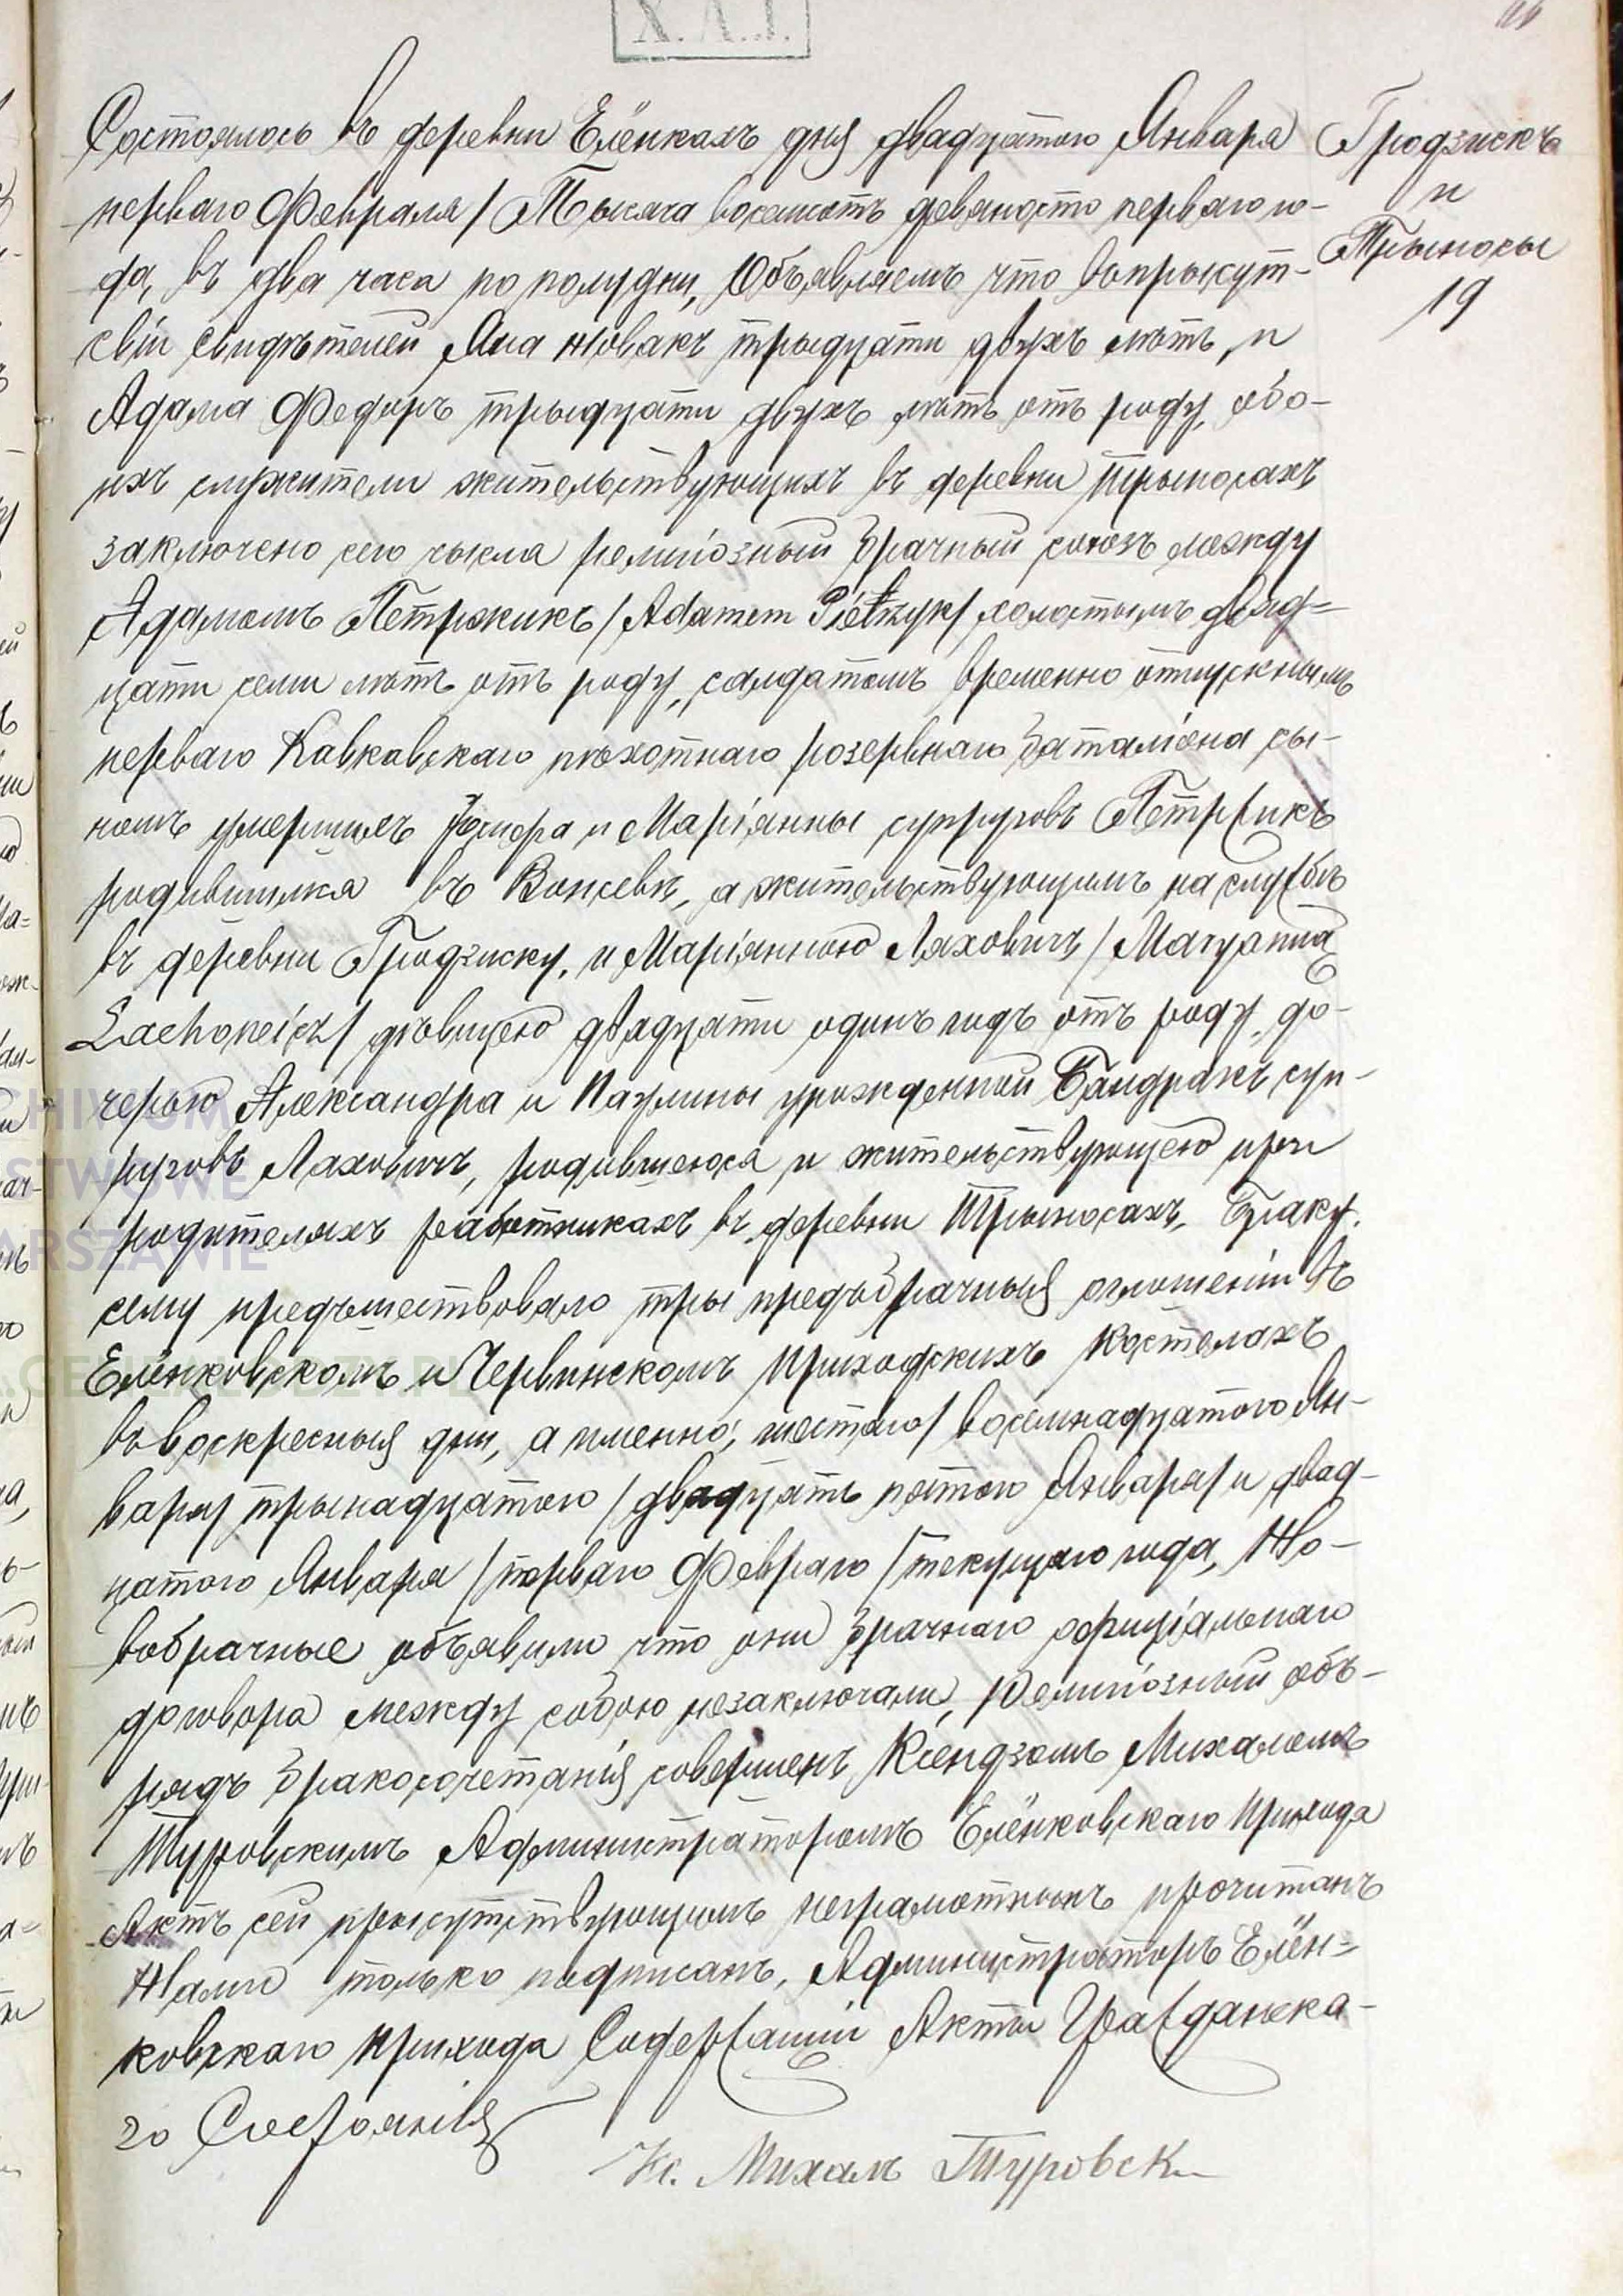 Х.А.І.
Состоялось въ деревни Елёнкахъ дня двадцатого Января
перваго Февраля / Тысяча восемсотъ девяносто перваго го-
да, въ два часа по полудни, Объявляемъ что вопрысут-
свіи свидѣтелей Яна Новакъ трыдцати двухъ лѣтъ, и
Адама Федоръ трыдцати двухъ лѣтъ отъ роду, обо-
ихъ служители жительствующихъ въ деревни Трыносахъ
заключено сего чысла религіозный брачный союзъ между
Адамомъ Петржикъ / Adamem Pietrzyk / холостымъ двад=
цати семи лѣтъ отъ роду, салдатомъ временно отпускнымъ
перваго Кавкавскаго пѣхотнаго розервнаго баталіона сы-
номъ умершихъ и Маріянны супруговъ Петржикъ
родившимся въ Вонсевѣ, а жительствующимъ на службѣ
въ деревни Гродзиску, и Маріянною Ляховичъ / Maryanną
Lachowicz / дѣвицею двадцати одинъ годъ отъ роду, до-
черью Александра и Паулины урожденной Бандракъ суп-
руговъ Ляховичъ, родившеюся и жительствующею при
родителяхъ работникахъ въ деревни Трыносахъ, Браку
сему предъшествовало тры предъбрачныя оглошеніи въ
Елёнковскомъ и Червинскомъ приходскихъ Костелахъ
въ воскресныя дни, а именно; шестаго / восемнадцатого Ян-
варя / трынадцатого / двадцать пятого Января / и двад-
цатого Января / перваго Февраго / текущаго года, Но-
вобрачные объявили что они брачнаго официіальнаго
договора между собою незаключали, Религіозный объ-
рядъ бракосочетанія совершенъ Ксендзомъ Михаломъ
Туровскимъ Администраторомъ Елёнковскаго прихода
Актъ сей прысутствующимъ неграмотнымъ прочитанъ
Нами только подписанъ, Администраторъ Елён=
ковскаго прихода Содержащій Акты Гражданска-
го Состоянія
Кс. Михалъ Туровски
Гродзискъ
и
Трыносы
19